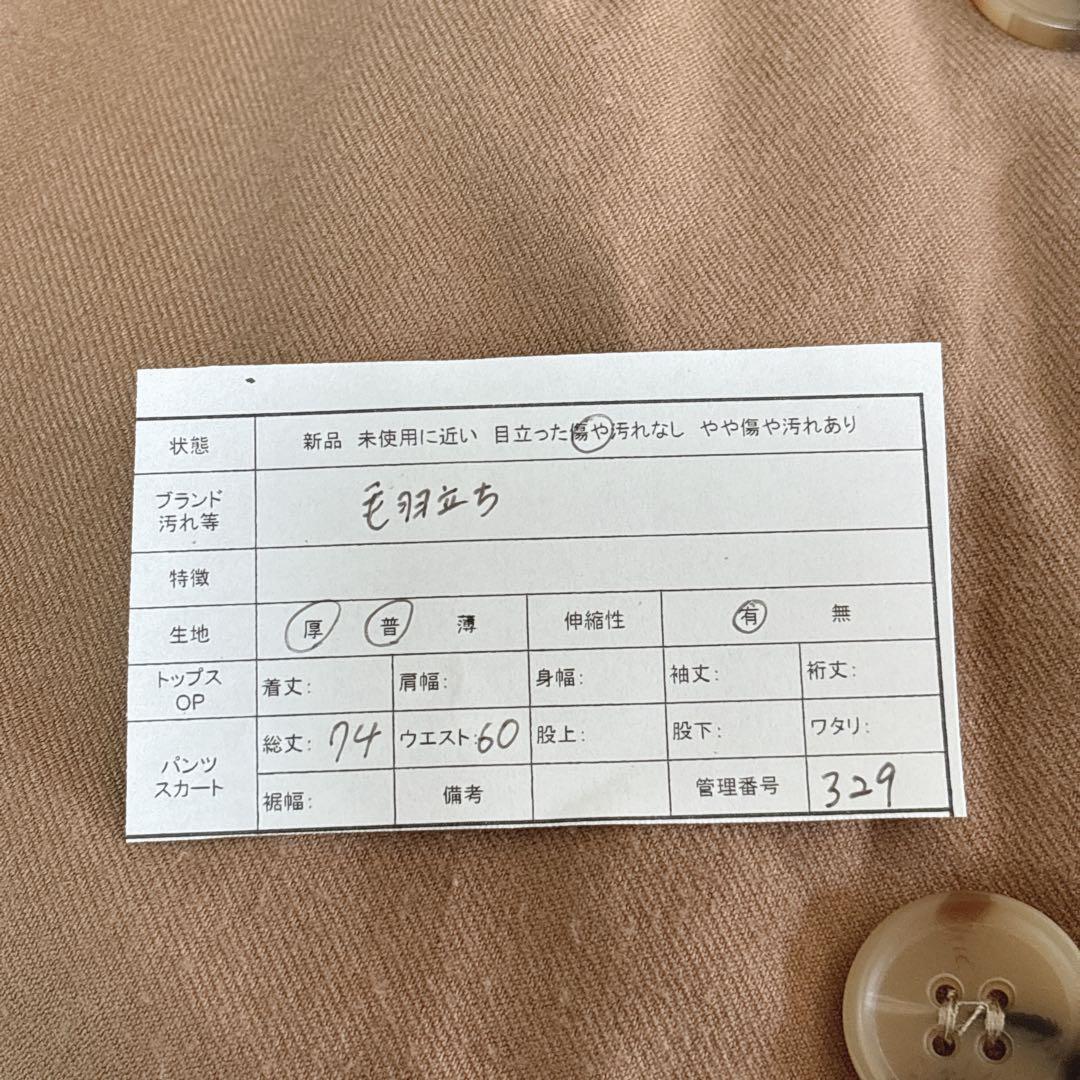 状態 新品 未使用に近い 目立った傷や汚れなし やや傷や汚れあり
ブランド
汚れ等 毛羽立ち
特徴
生地 厚 普 薄 伸縮性 有 無
トップス
OP 着丈: 肩幅: 身幅: 袖丈: 裄丈:
パンツ
スカート 総丈: 74 ウエスト: 60 股上: 股下: ワタリ:
裾幅: 備考 管理番号 329